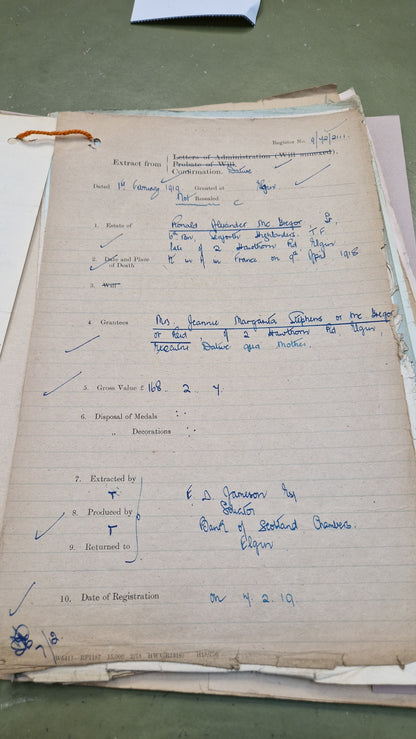 Register No. 9/42/2111.
Letters of Administration (Will annexed).
Extract from Probate of Will.
Confirmation. Dative
Dated 1st February 1919 Granted at Elgin
Not Resealed
1. Estate of Ronald Alexander Mc Gregor, Lt.
6th Bn. Seaforth Highlanders, T.F.
late of 2 Hawthorn Rd Elgin
2. Date and Place of Death K in A in France on 9th April 1918
3. Will
4. Grantees Mrs. Jeannie Margaret Stephens or Mc Gregor
or Reid, of 2 Hawthorn Rd Elgin,
Executrix Dative qua Mother.
5. Gross Value £ 168 . 2 . 4.
6. Disposal of Medals :
„ Decorations :
7. Extracted by E. D. Jameson Esq
T Solicitor
8. Produced by Bank of Scotland Chambers.
T
9. Returned to Elgin
10. Date of Registration On 7.2.19